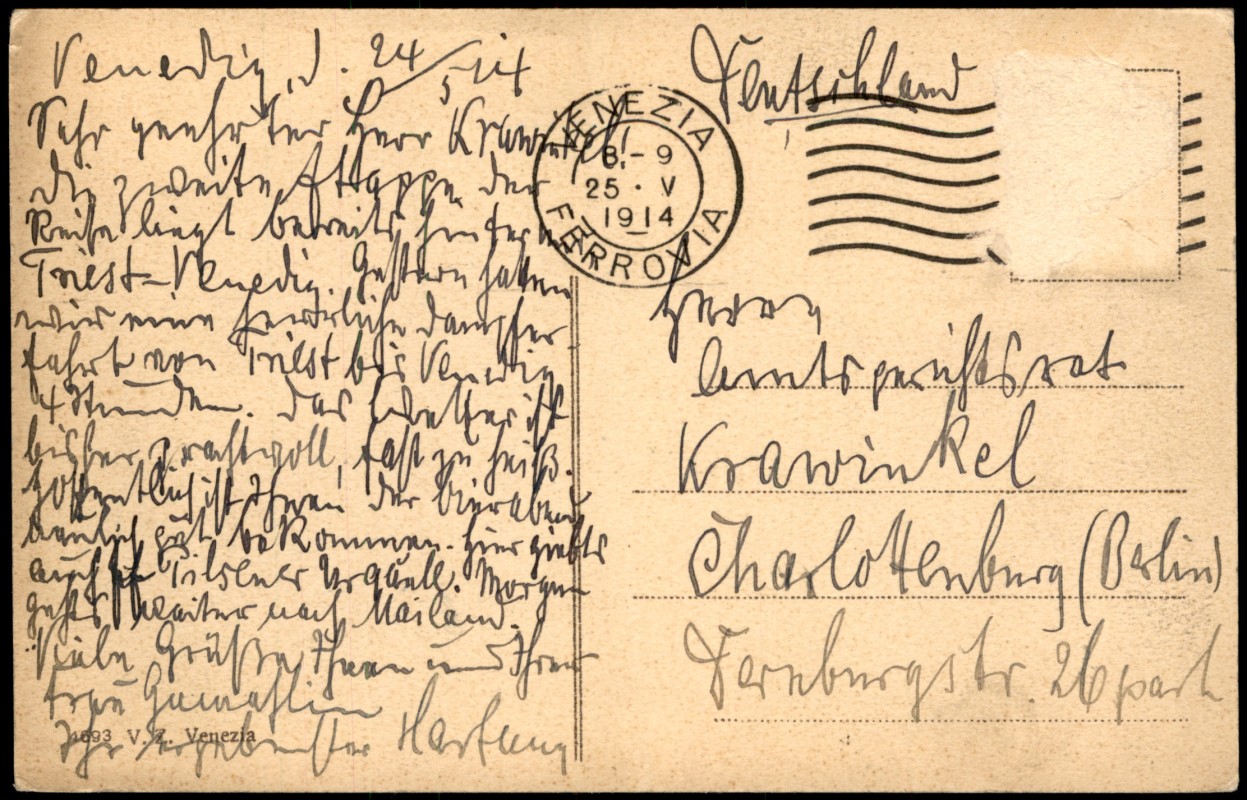 Venedig, d. 24/5 14
Sehr geehrter Herr Krawinkel!
Die zweite Etappe der
Reise liegt bereits hinter uns
Triest-Venedig. Gestern hatten
wir eine herrliche Dampfer-
fahrt von Triest bis Venedig
4 Stunden. Das Wetter ist
bisher prachtvoll, fast zu heiß.
Hoffentlich ist Ihnen der Bierabend
neulich gut bekommen. Hier giebts
auch Pilsener Urquell. Morgen
gehts weiter nach Mailand.
Viele Grüße Ihnen und Ihrer
Frau Gemahlin
Ihr ergebenster Hartung
4693 V. Z. Venezia
VENEZIA
8-9
25 · V
1914
FERROVIA
Deutschland
Herrn
Amtsgerichtsrat
Krawinkel
Charlottenburg (Berlin)
Dernburgstr. 26 part